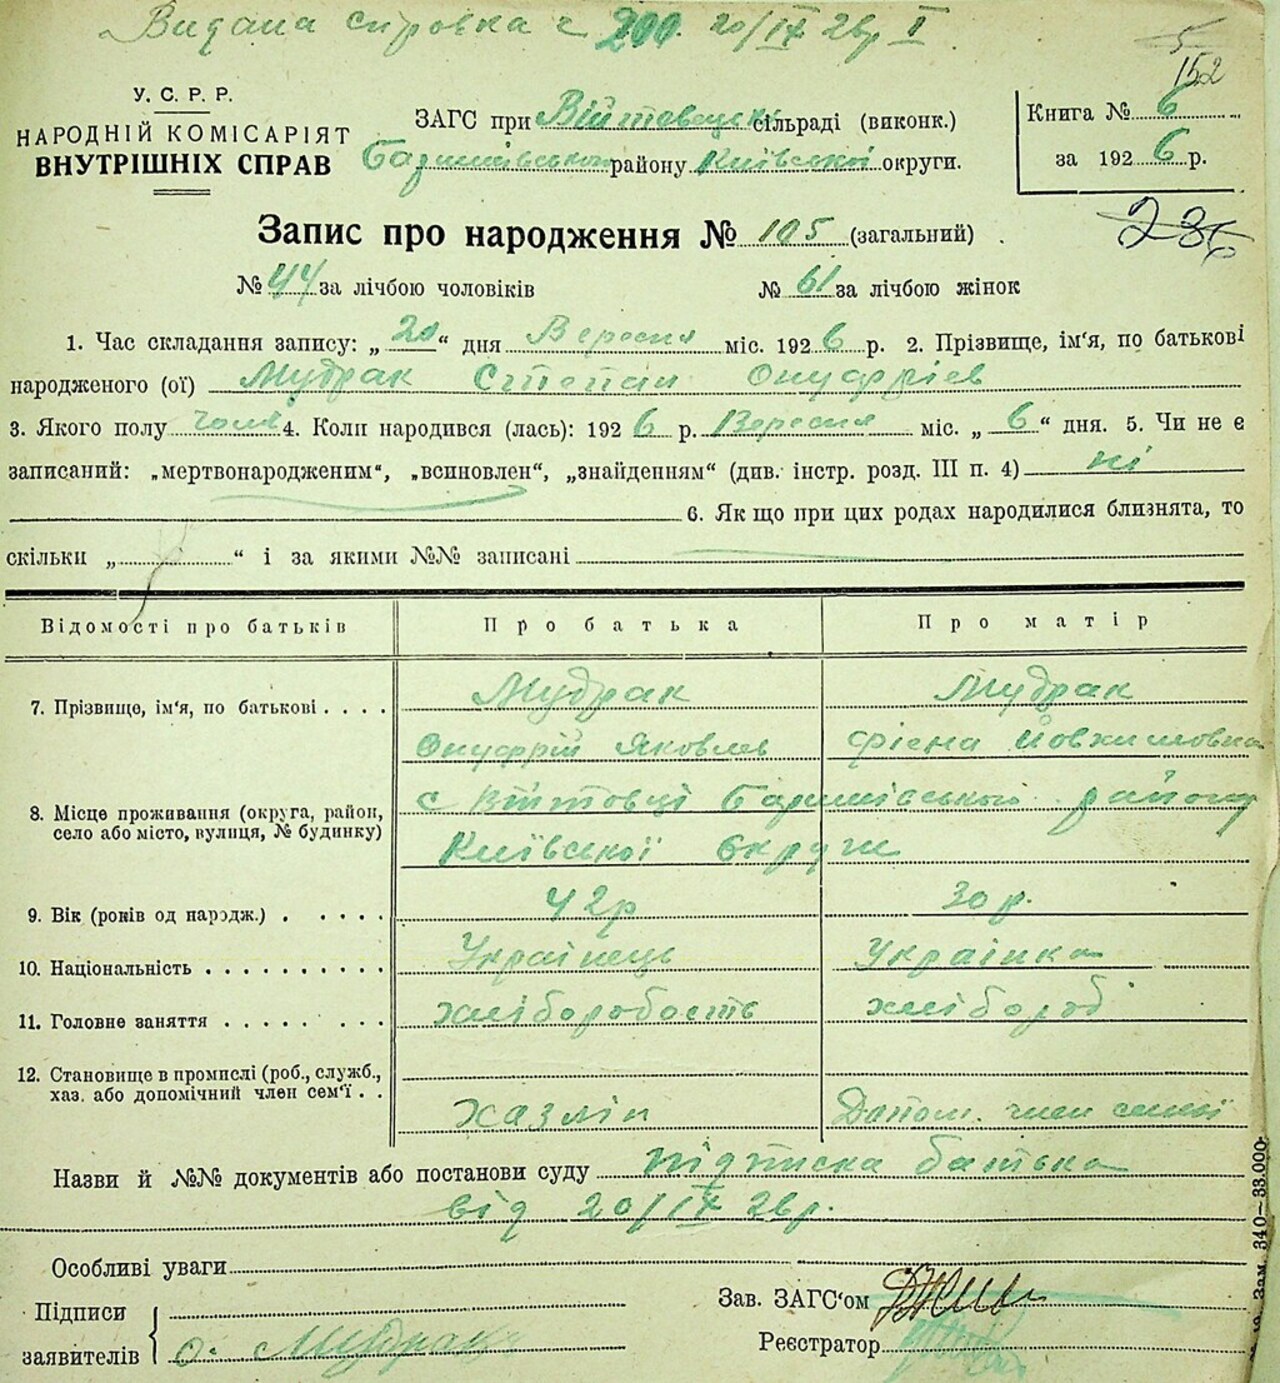 Видана справка с 200. 20/IX 26р I
5
152
У. С. Р. Р.
НАРОДНІЙ КОМІСАРІЯТ
ВНУТРІШНІХ СПРАВ
ЗАГС при Війтовецькі сільраді (виконк.)
Баришівського району Київської округи.
Книга № 6
за 1926 р.
236
Запис про народження № 105 (загальний)
№ 44 за лічбою чоловіків № 61 за лічбою жінок
1. Час складання запису: „20“ дня Вересня міс. 1926 р. 2. Прізвище, ім'я, по батькові
народженого (ої) Мудрак Степан Онуфріев
3. Якого полу чолов 4. Коли народився (лась): 1926 р. Вересня міс. „6“ дня. 5. Чи не є
записаний: „мертвонародженим“, „всиновлен“, „знайденням“ (див. інстр. розд. III п. 4) ні
6. Як що при цих родах народилися близнята, то
скільки „ “ і за якими №№ записані
Відомості про батьків Про батька Про матір
7. Прізвище, ім'я, по батькові . . . . Мудрак Мудрак
Онуфрій Яковлев Фієна Йовхимовна
8. Місце проживання (округа, район, с Війтовці Баришівського району
село або місто, вулиця, № будинку) Київської Округи
9. Вік (років од народж.) . . . . . 42р 30 р.
10. Національність . . . . . . . . . . Українець Українка
11. Головне заняття . . . . . . . . хліборобость хлібороб
12. Становище в промислі (роб., служб.,
хаз. або допомічний член сем'ї . . хазяїн Допом. член семьї
Назви й №№ документів або постанови суду підписка батька
від 20/IX 26р.
Особливі уваги
Підписи
заявителів о. Мудрак
Зав. ЗАГС'ом
Реєстратор
Зам. 340—33.000